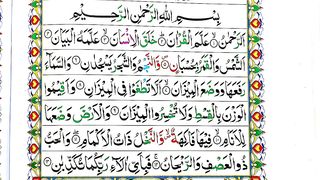 بِسْمِ اللهِ الرَّحْمٰنِ الرَّحِيْمِ
اَلرَّحْمٰنُ ۝ عَلَّمَ الْقُرْاٰنَ ۝ خَلَقَ الْاِنْسَانَ ۝ عَلَّمَهُ الْبَيَانَ ۝
اَلشَّمْسُ وَالْقَمَرُ بِحُسْبَانٍ ۝ وَّالنَّجْمُ وَالشَّجَرُ يَسْجُدٰنِ ۝ وَالسَّمَآءَ
رَفَعَهَا وَوَضَعَ الْمِيْزَانَ ۝ اَلَّا تَطْغَوْا فِى الْمِيْزَانِ ۝ وَاَقِيْمُوا
الْوَزْنَ بِالْقِسْطِ وَلَا تُخْسِرُوا الْمِيْزَانَ ۝ وَالْاَرْضَ وَضَعَهَا
لِلْاَنَامِ ۝ فِيْهَا فَاكِهَةٌ وَّالنَّخْلُ ذَاتُ الْاَكْمَامِ ۝ وَالْحَبُّ
ذُو الْعَصْفِ وَالرَّيْحَانُ ۝ فَبِاَىِّ اٰلَآءِ رَبِّكُمَا تُكَذِّبٰنِ ۝